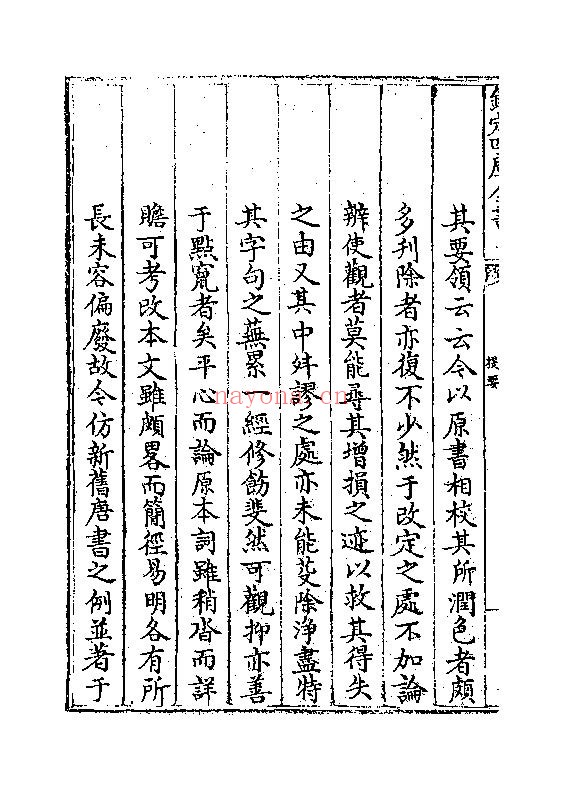 其要領云云今以原書相校其所潤色者頗
多刋除者亦復不少然于改定之處不加論
辨使觀者莫能尋其增損之迹以救其得失
之由又其中舛謬之處亦未能芟除浄盡特
其字句之蕪累一經修飭斐然可觀抑亦善
于㸃竄者矣平心而論原本詞雖稍沓而詳
贍可考改本文雖頗畧而簡徑易明各有所
長未容偏廢故今仿新舊唐書之例並著于
提要
nayona.cn